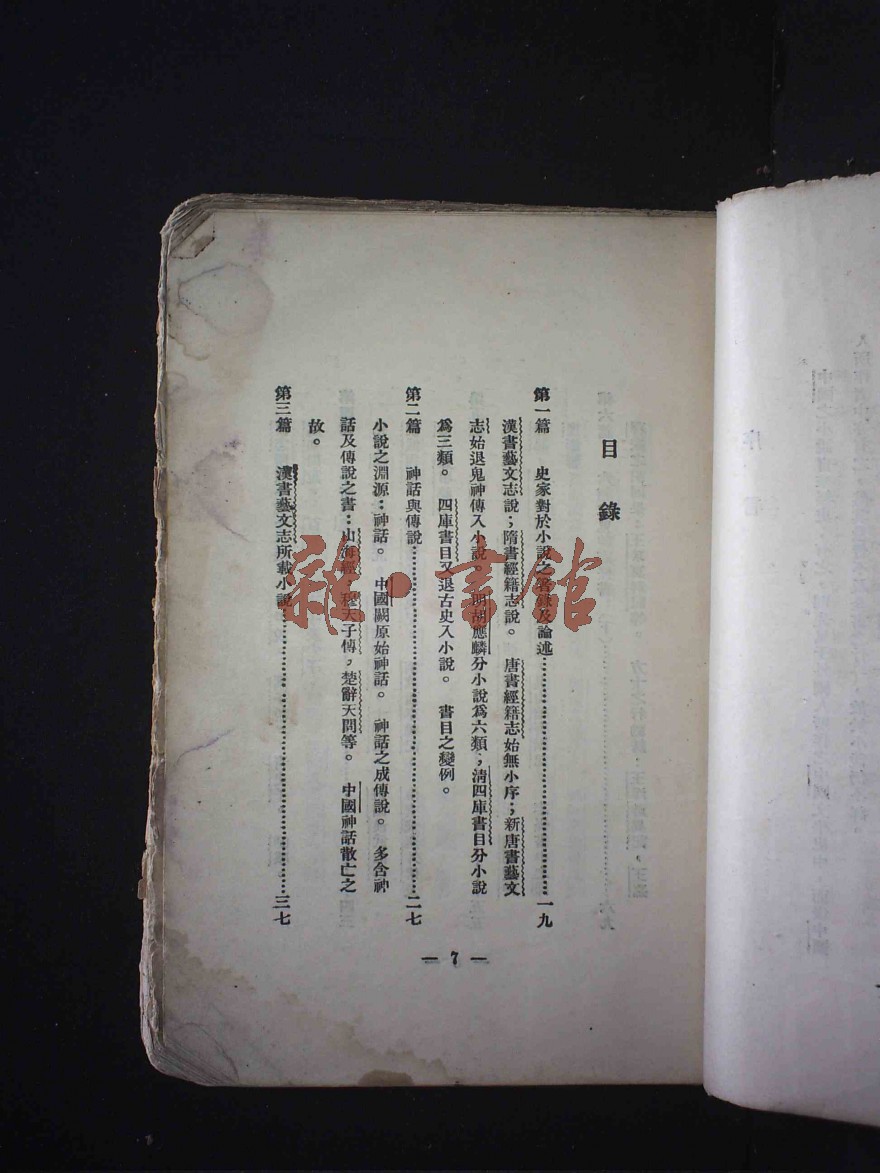 目錄
第一篇　史家對於小說之著錄及論述……………………一九
漢書藝文志說；隋書經籍志說。　唐書經籍志始無小序；新唐書藝文
志始退鬼神傳入小說。　明胡應麟分小說爲六類；清四庫書目分小說
爲三類。　四庫書目又退古史入小說。　書目之變例。
第二篇　神話與傳說……………………二七
小說之淵源：神話。　中國闕原始神話。　神話之成傳說。　多含神
話及傳說之書：山海經，穆天子傳，楚辭天問等。　中國神話散亡之
故。
第三篇　漢書藝文志所載小說……………………三七
— 7 —
雜·書館